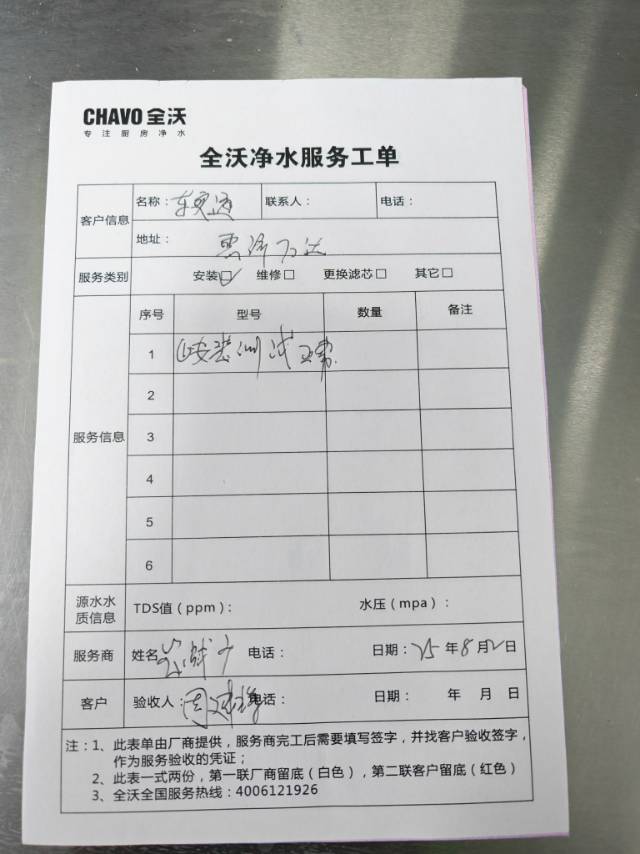 CHAVO 全沃
专注厨房净水
全沃净水服务工单
客户信息 名称： 联系人： 电话：
地址： 万达
服务类别 安装☑ 维修□ 更换滤芯□ 其它□
服务信息 序号 型号 数量 备注
1 安装测试正常.
2
3
4
5
6
源水水质信息 TDS值（ppm）： 水压（mpa）：
服务商 姓名 电话： 日期：25年8月2日
客户 验收人： 电话： 日期： 年 月 日
注：1、此表单由厂商提供，服务商完工后需要填写签字，并找客户验收签字，
作为服务验收的凭证；
2、此表一式两份，第一联厂商留底（白色），第二联客户留底（红色）
3、全沃全国服务热线：4006121926